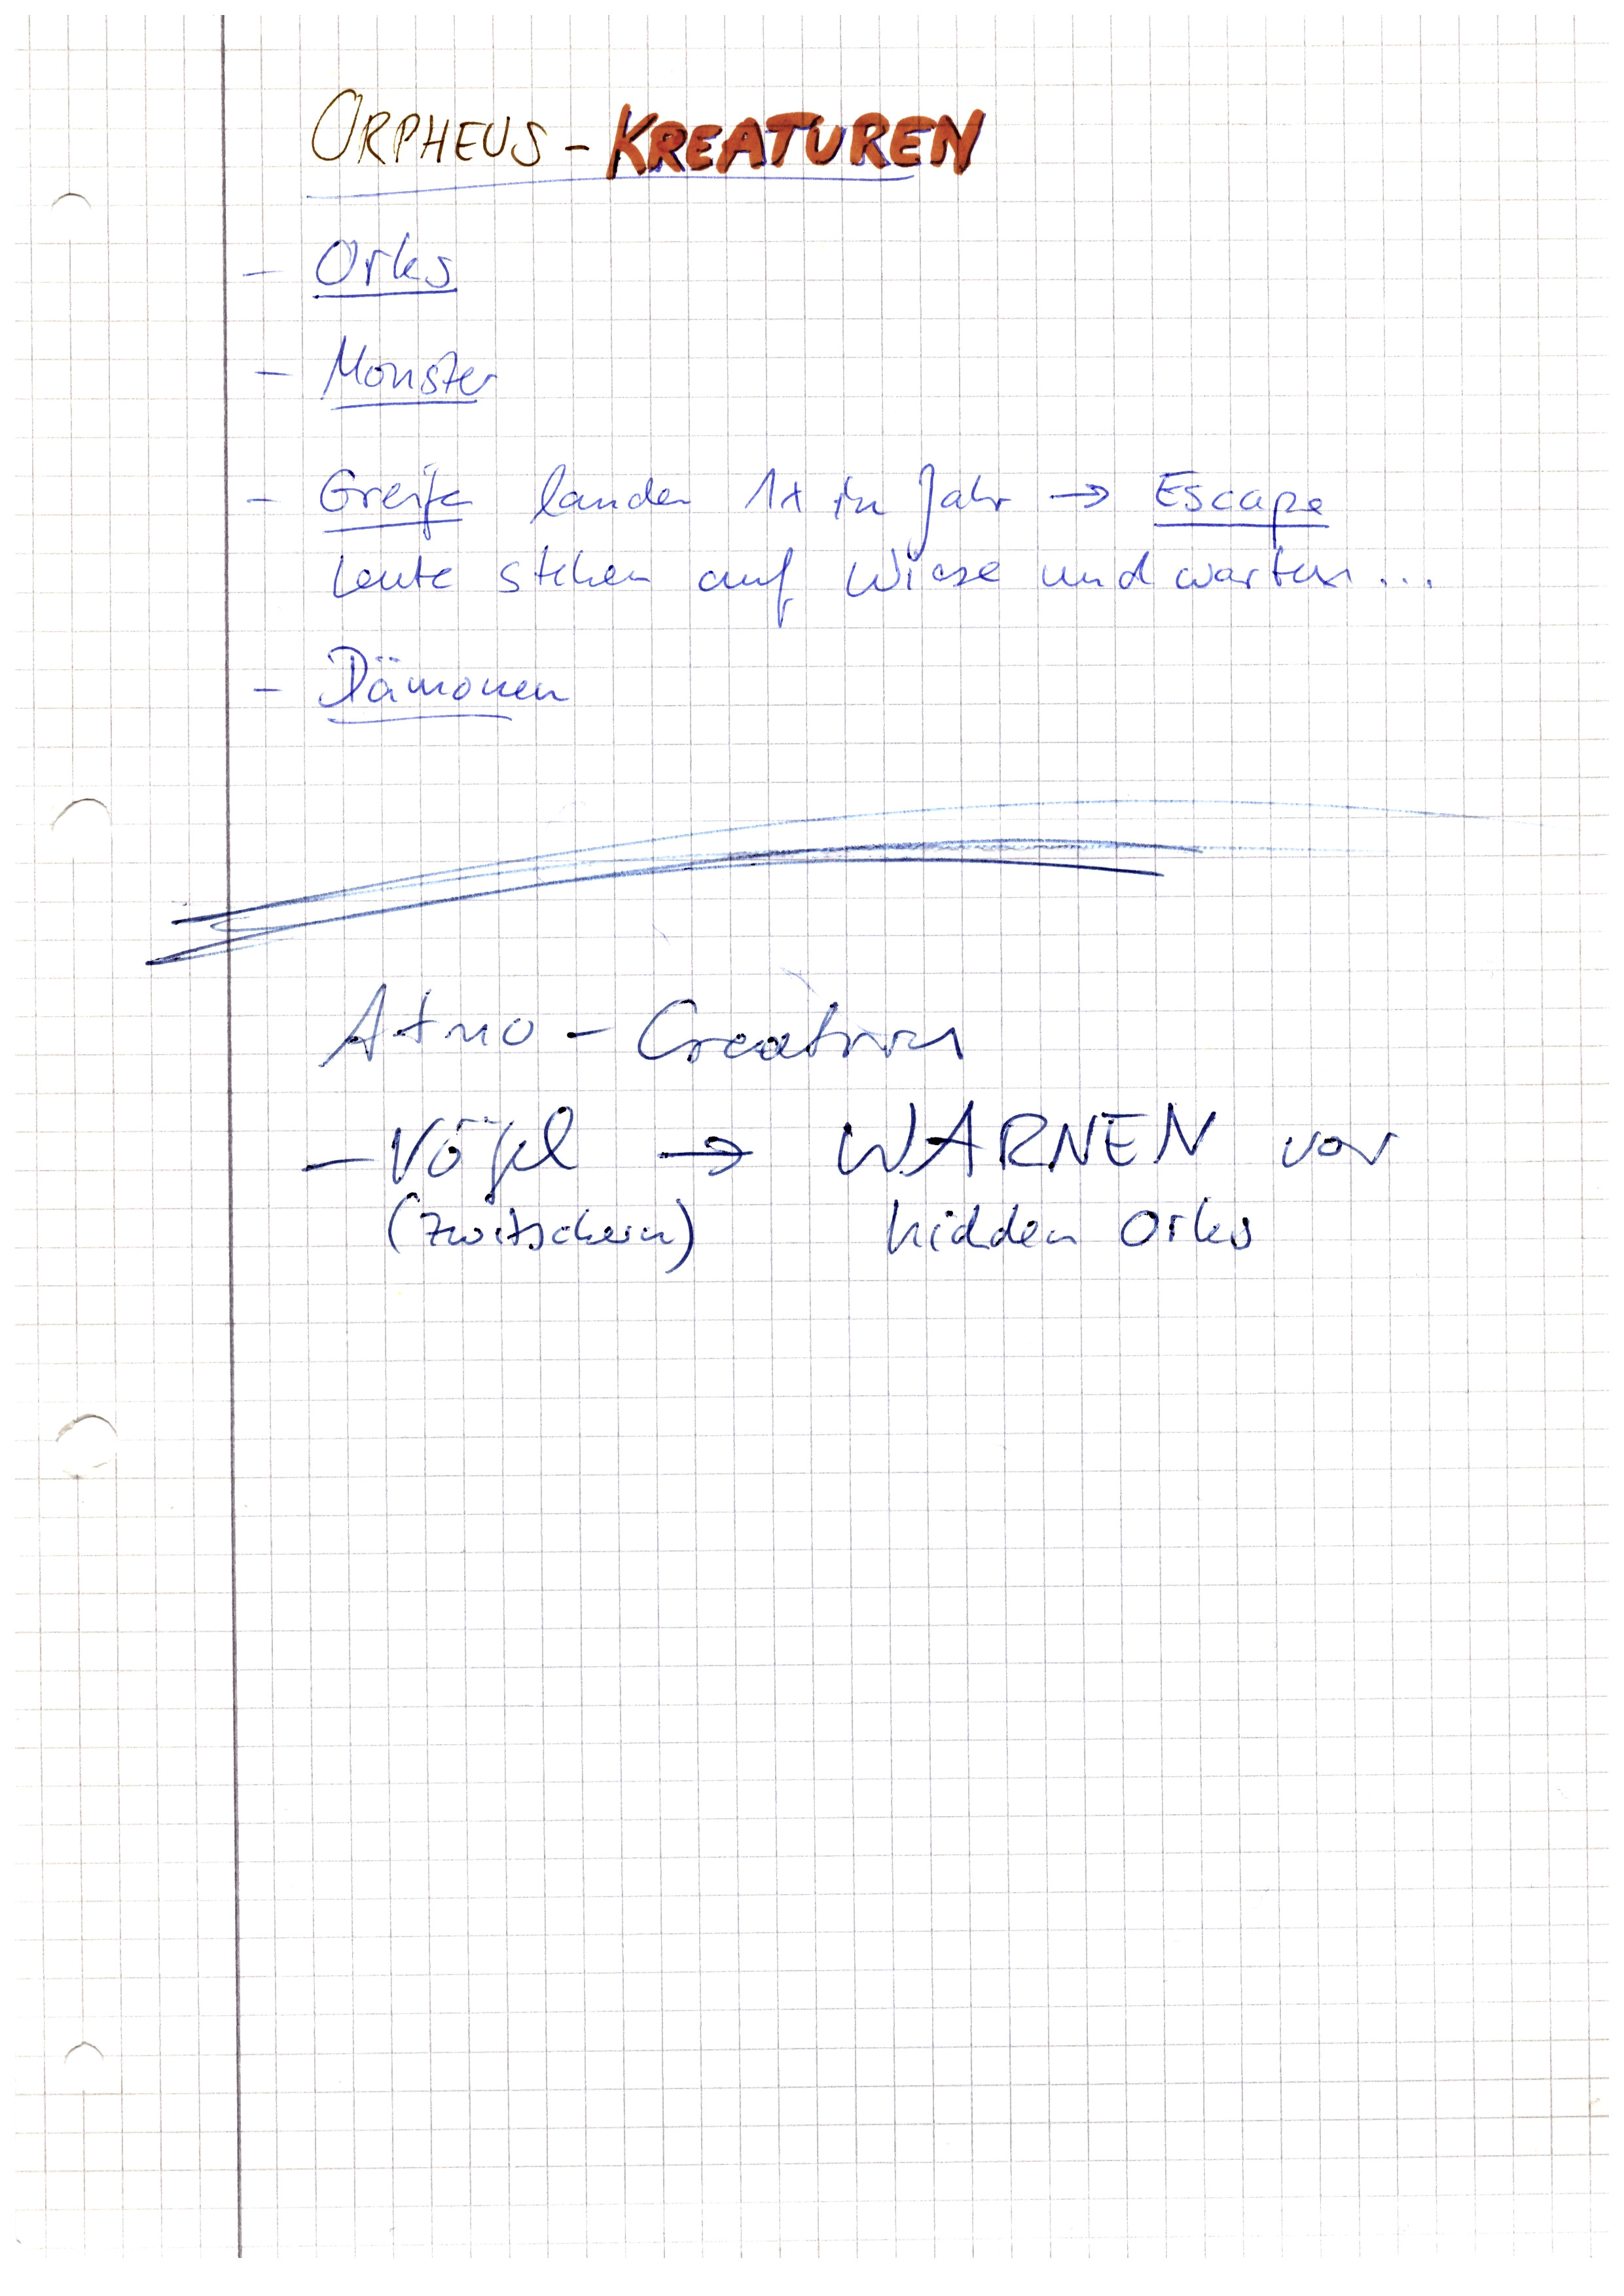 ORPHEUS - KREATUREN
- Orks
- Monster
- Greife landen 1x im Jahr → Escape
Leute stehen auf Wiese und warten...
- Dämonen
Atmo - Creaturen
- Vögel → WARNEN vor
(zwitschern) hidden Orks